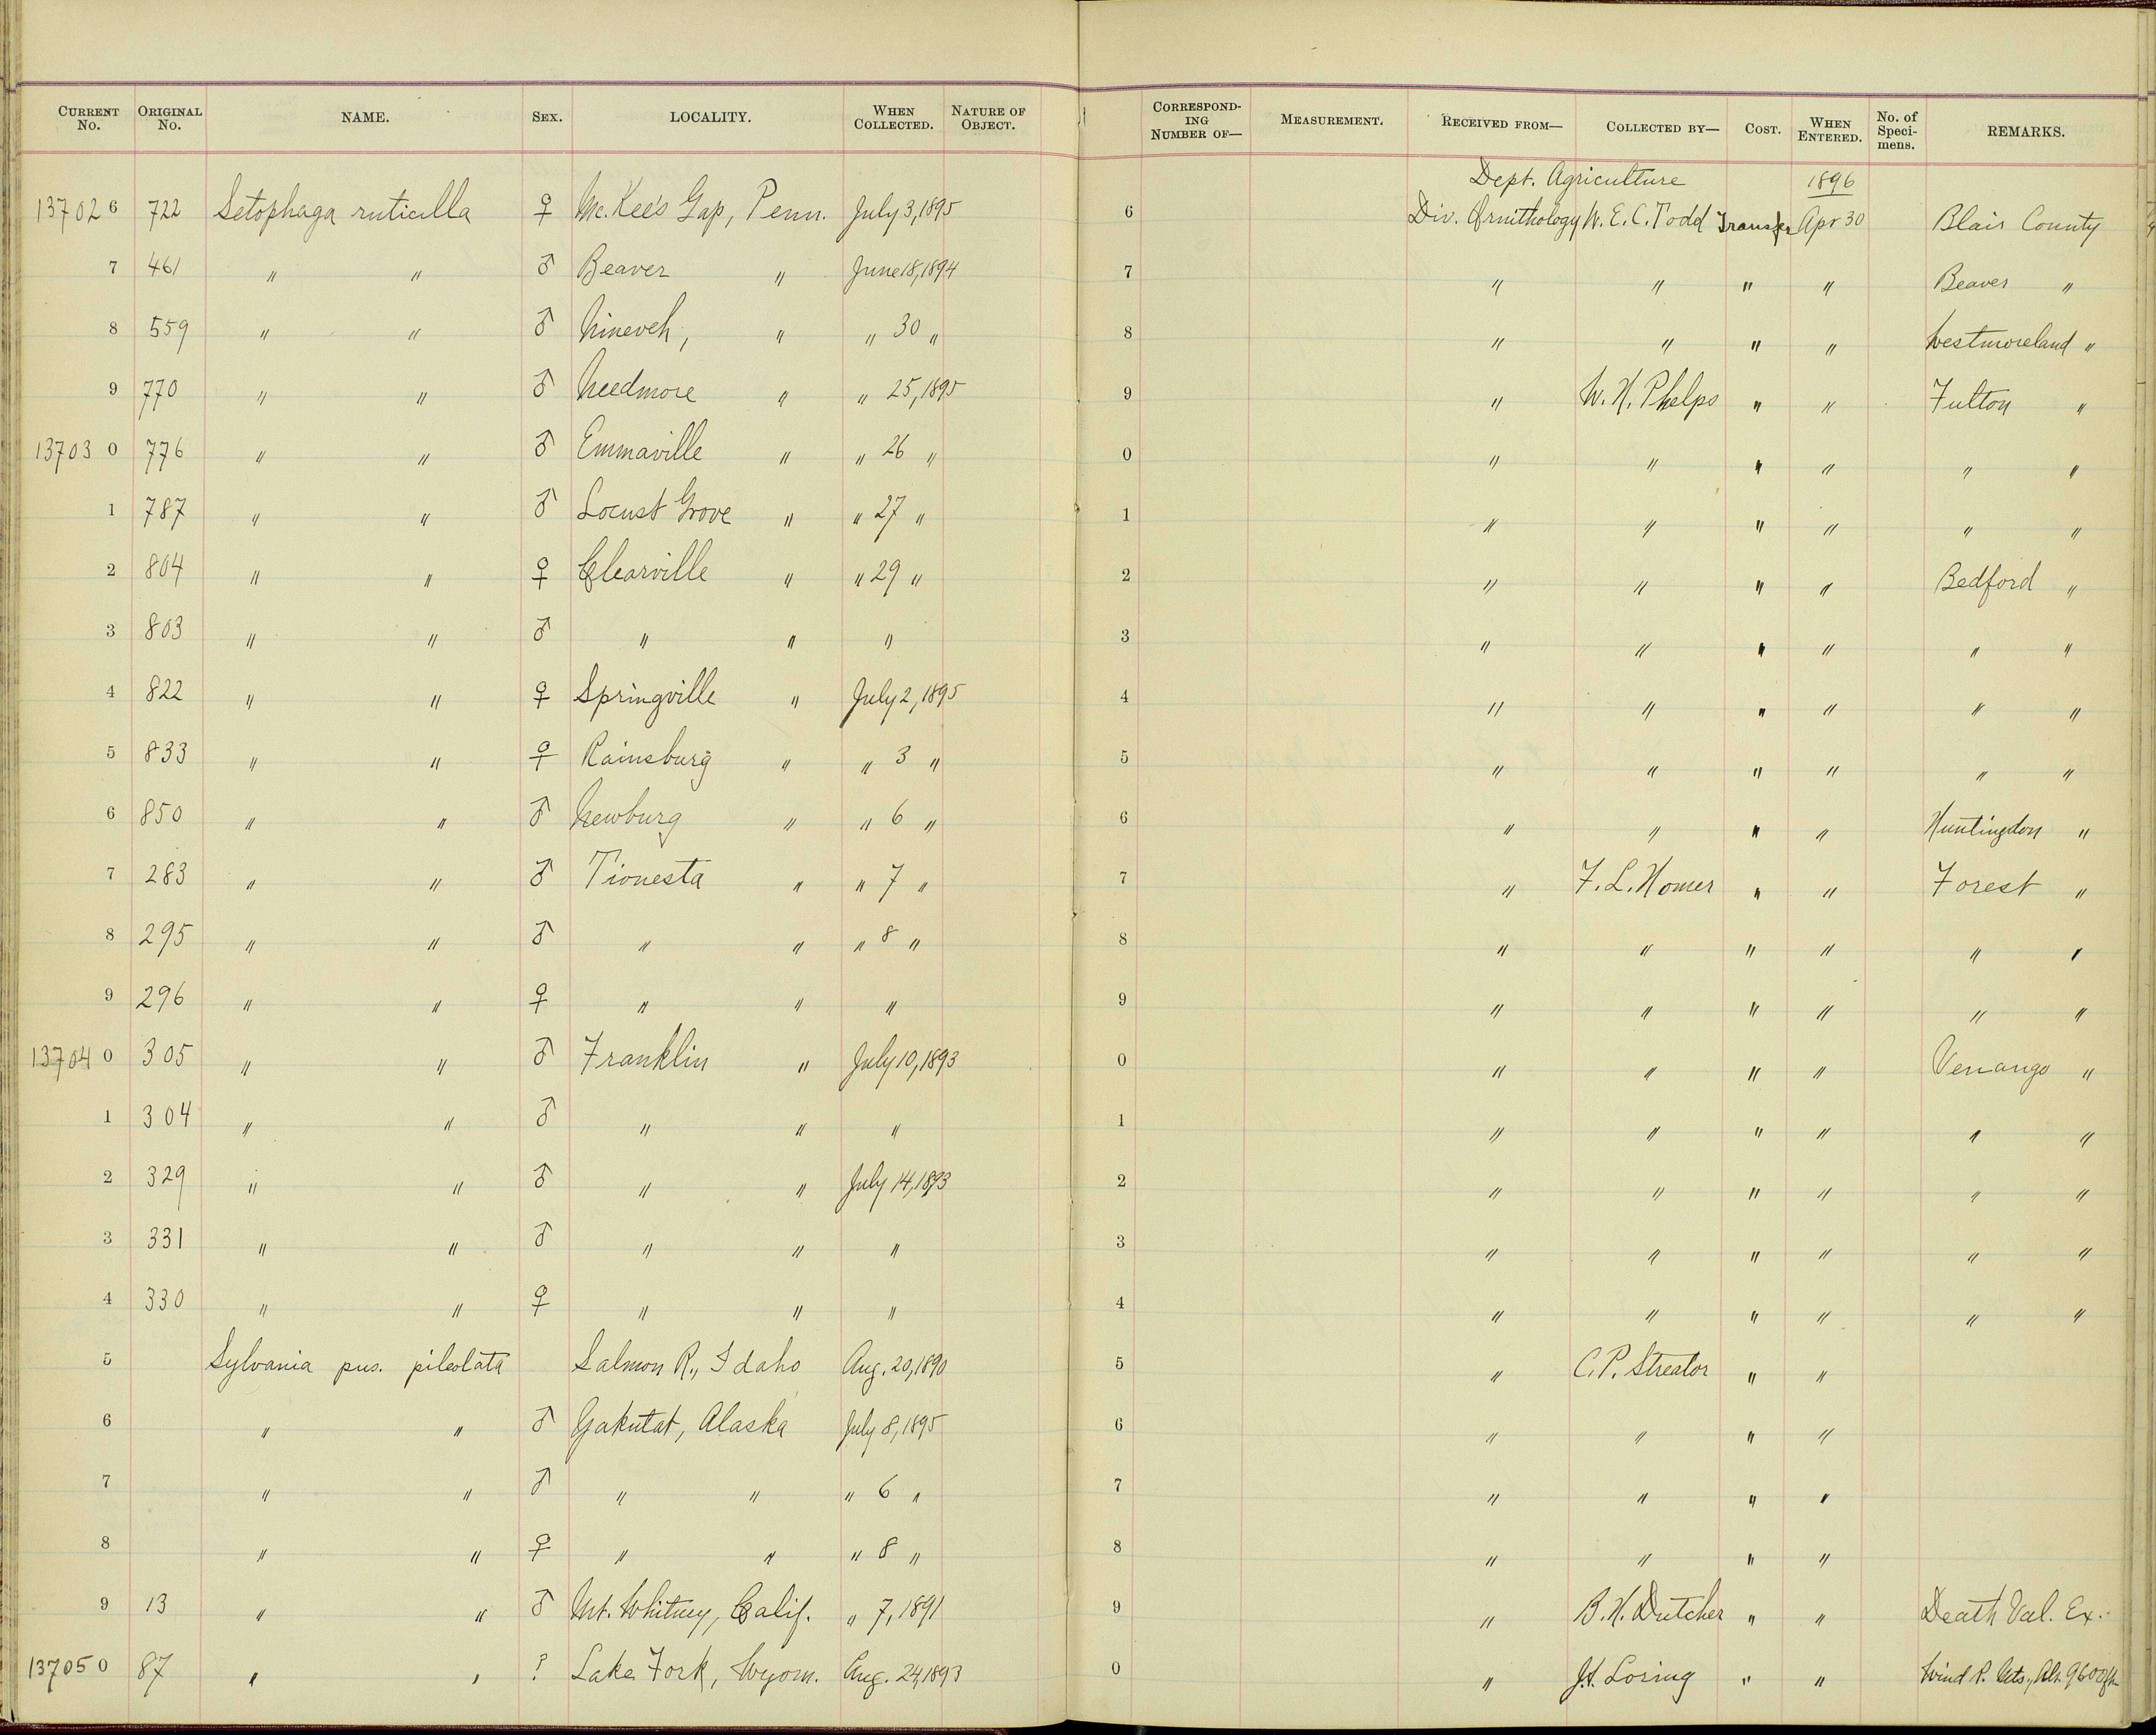 CURRENT No. ORIGINAL No. NAME. SEX. LOCALITY. WHEN COLLECTED. NATURE OF OBJECT. CORRESPONDING NUMBER OF— MEASUREMENT. RECEIVED FROM— COLLECTED BY— COST. WHEN ENTERED. No. of Specimens. REMARKS.
Dept. Agriculture 1896
137026 722 Setophaga ruticilla ♀ Mc.Kee's Gap, Penn. July 3, 1895 6 Div. Ornithology W. E. C. Todd Transfer Apr 30 Blair County
7 461 " " ♂ Beaver " June 18, 1894 7 " " " " Beaver "
8 559 " " ♂ Nineveh, " " 30 " 8 " " " " Westmoreland "
9 770 " " ♂ Needmore " " 25, 1895 9 " W. H. Phelps " " Fulton "
137030 776 " " ♂ Emmaville " " 26 " 0 " " " " " "
1 787 " " ♂ Locust Grove " " 27 " 1 " " " " " "
2 804 " " ♀ Clearville " " 29 " 2 " " " " Bedford "
3 803 " " ♂ " " " 3 " " " " " "
4 822 " " ♀ Springville " July 2, 1895 4 " " " " " "
5 833 " " ♀ Rainsburg " " 3 " 5 " " " " " "
6 850 " " ♂ Newburg " " 6 " 6 " " " " Huntingdon "
7 283 " " ♂ Tionesta " " 7 " 7 " F. L. Homer " " Forest "
8 295 " " ♂ " " " 8 " 8 " " " " " "
9 296 " " ♀ " " " 9 " " " " " "
137040 305 " " ♂ Franklin " July 10, 1893 0 " " " " Venango "
1 304 " " ♂ " " " 1 " " " " " "
2 329 " " ♂ " " July 14, 1893 2 " " " " " "
3 331 " " ♂ " " " 3 " " " " " "
4 330 " " ♀ " " " 4 " " " " " "
5 Sylvania pus. pileolata Salmon R., Idaho Aug. 20, 1890 5 " C. P. Streator " "
6 " " ♂ Yakutat, Alaska July 8, 1895 6 " " " "
7 " " ♂ " " " 6 " 7 " " " "
8 " " ♀ " " " 8 " 8 " " " "
9 13 " " ♂ Mt. Whitney, Calif. " 7, 1891 9 " B. H. Dutcher " " Death Val. Ex.
137050 87 " " ? Lake Fork, Wyom. Aug. 24, 1893 0 " J. A. Loring " " Wind R. Mts., Alt. 9600 ft.